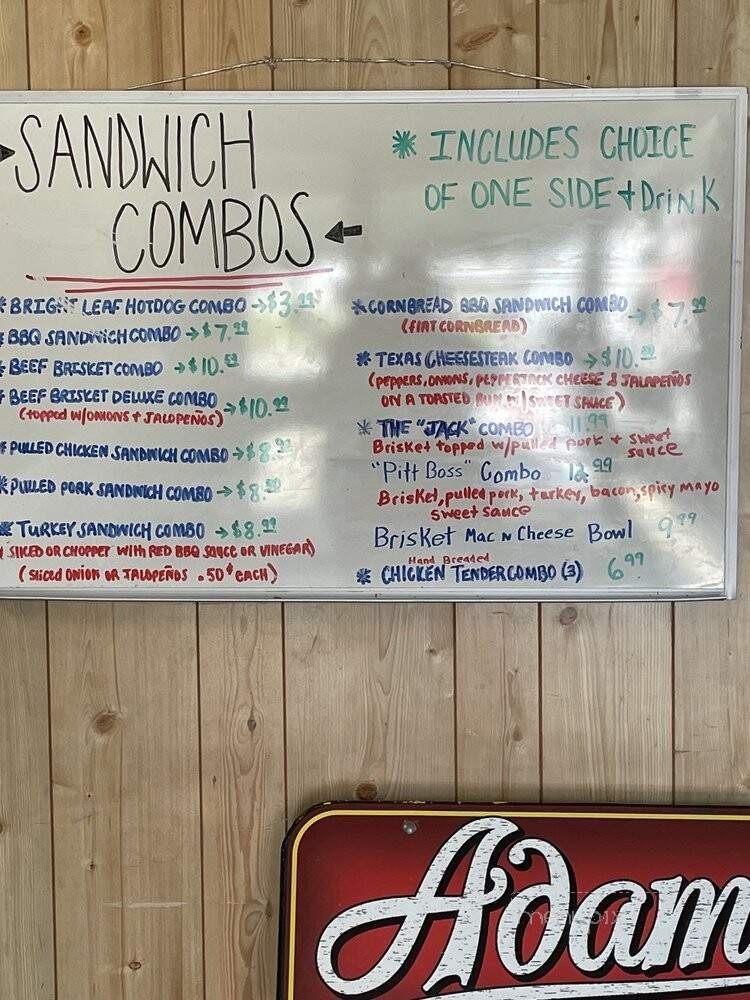 SANDWICH
COMBOS
* INCLUDES CHOICE
OF ONE SIDE + DRINK
* BRIGHT LEAF HOTDOG COMBO → $3.99
* BBQ SANDWICH COMBO → $7.99
* BEEF BRISKET COMBO → $10.
* BEEF BRISKET DELUXE COMBO → $10.99
(topped w/ONIONS + JALOPEÑOS)
* PULLED CHICKEN SANDWICH COMBO → $8.
* PULLED PORK SANDWICH COMBO → $8.
* TURKEY SANDWICH COMBO → $8.99
(SLICED OR CHOPPET WITH RED BBQ SAUCE OR VINEGAR)
(Sliced ONION OR JALOPEÑOS .50¢ EACH)
* CORNBREAD BBQ SANDWICH COMBO → $7.99
(FLAT CORNBREAD)
* TEXAS CHEESESTEAK COMBO → $10.
(PEPPERS, ONIONS, PEPPERJACK CHEESE & JALAPEÑOS
ON A TOASTED BUN W/ SWEET SAUCE)
* THE "JACK" COMBO 11.99
Brisket topped w/pulled pork + sweet
sauce
"Pitt Boss" Combo 12.99
Brisket, pulled pork, turkey, bacon, spicy mayo
sweet sauce
Brisket Mac N Cheese Bowl 9.99
Hand Breaded
* CHICKEN TENDER COMBO (3) 6.99
Adam